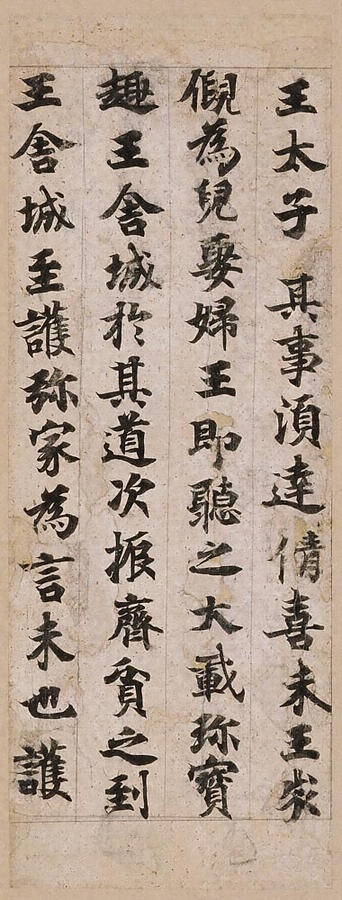 王太子 其事湏達倩喜未王
倪為兒娶婦王即聽之大載珎寶
趣王舍城於其道次振齊貧之到
王舍城至護弥家為言未也護